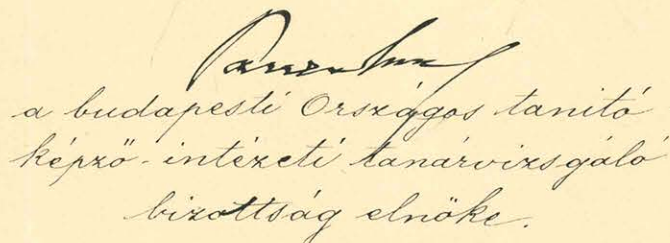 a budapesti Országos tanitó
képző-intézeti tanárvizsgáló
bizottság elnöke.